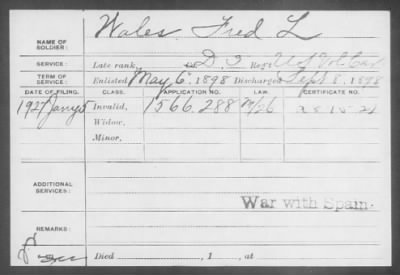 NAME OF SOLDIER: Wales, Fred L
SERVICE: Late rank, Co D, 2 Reg't U S Vol Cav
TERM OF SERVICE: Enlisted May 6, 1898 Discharged Sept 8, 1898
DATE OF FILING. CLASS. APPLICATION NO. LAW. CERTIFICATE NO.
1927 Jany 5 Invalid, 1566.288
Widow,
Minor,
ADDITIONAL SERVICES:
War with Spain.
REMARKS:
Died , 1 , at